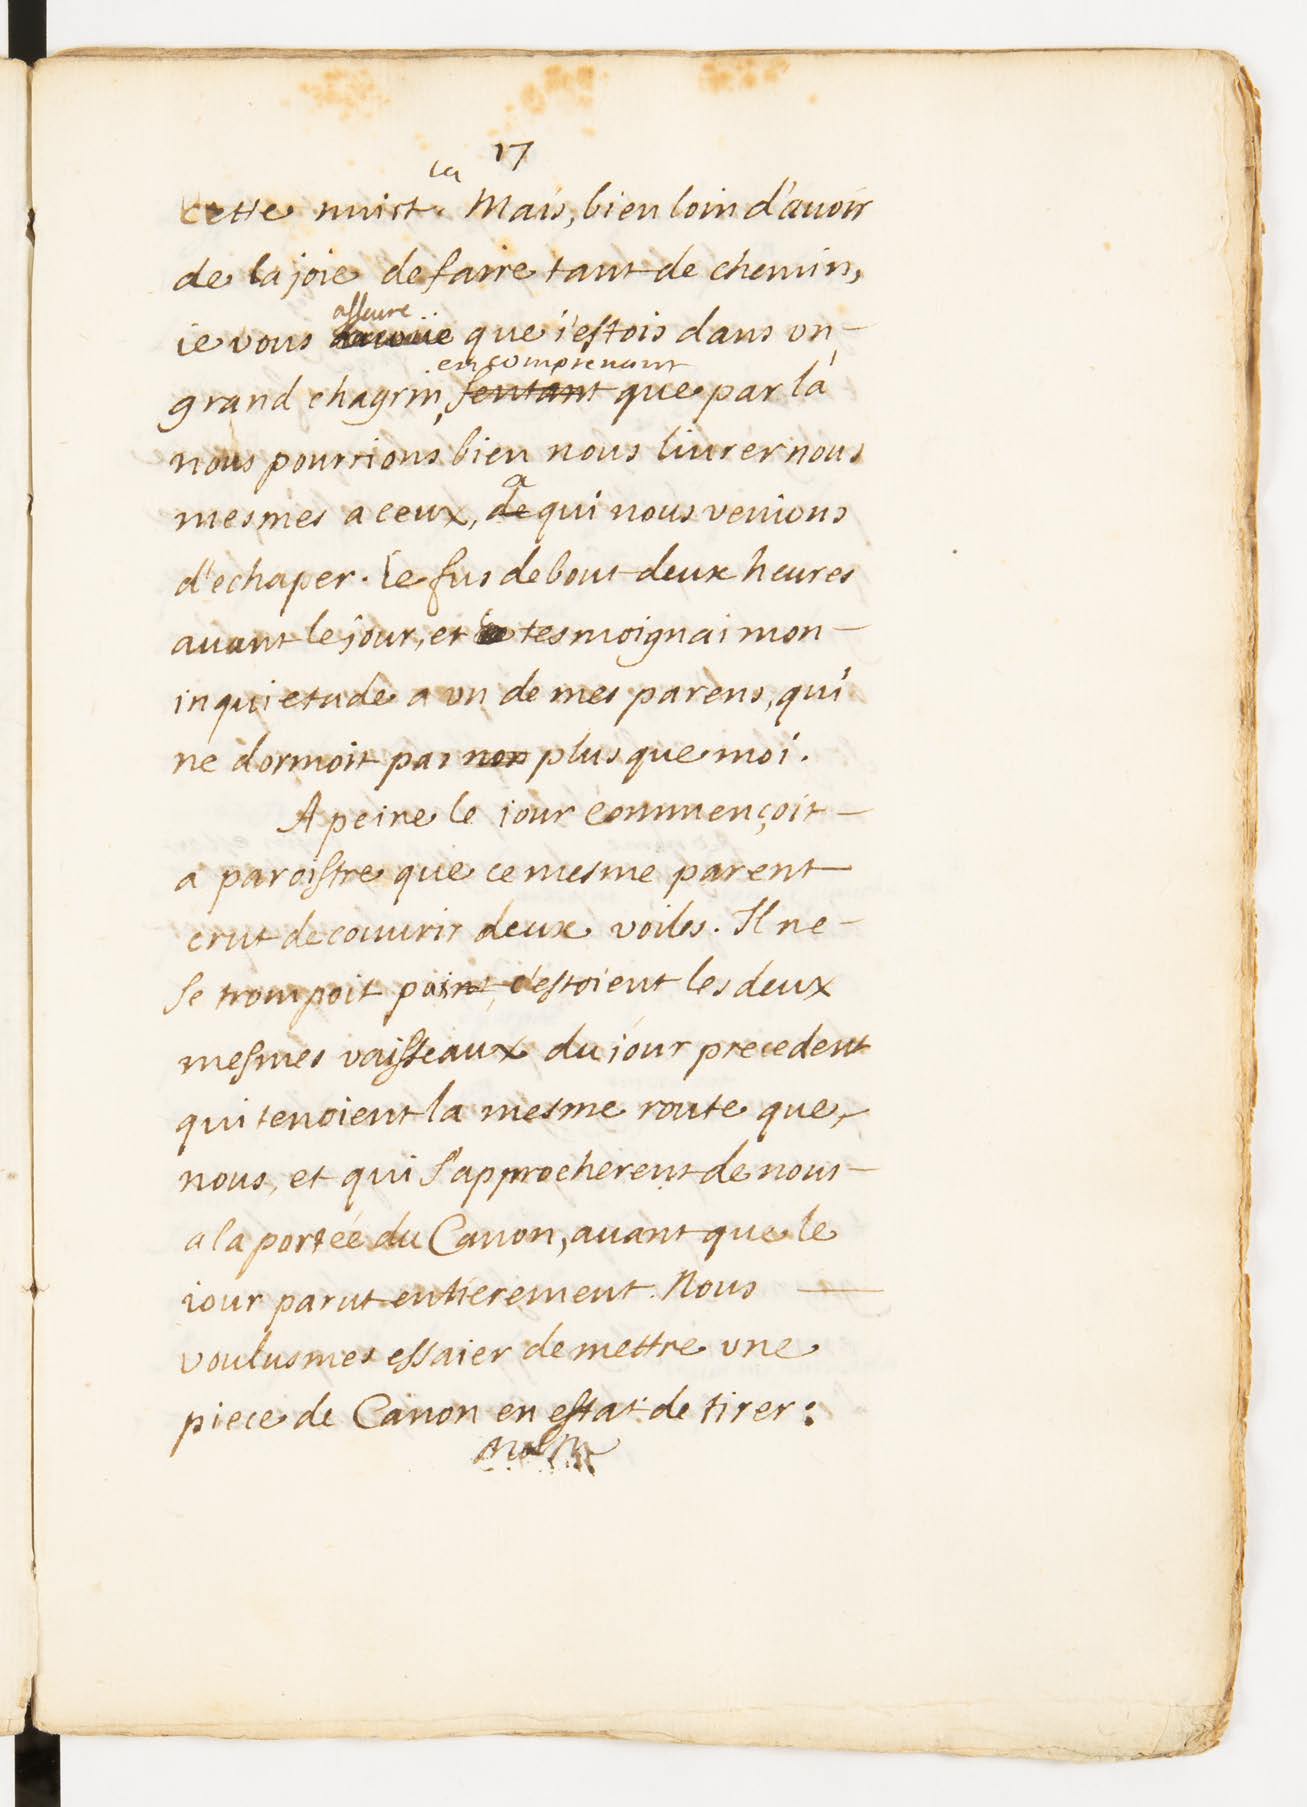 17
la
cette nuict. Mais, bien loin d'auoir
de la joie de faire tant de chemin,
asseure
ie vous auoüe que i'estois dans vn
en comprenant
grand chagrin, sentant que par là
nous pourrions bien nous liurer nous
a
mesmes a ceux, de qui nous venions
d'echaper. Ie fus debout deux heures
auant le jour, et tesmoignai mon
inquietude a vn de mes parens, qui
ne dormoit pas non plus que moi.
A peine le iour commençoit
a paroistre que ce mesme parent
crut decouurir deux voiles. Il ne
se trompoit point, c'estoient les deux
mesmes vaisseaux du iour precedent
qui tenoient la mesme route que
nous, et qui s'approcherent de nous
a la portée du Canon, auant que le
iour parut entierement. Nous
voulusmes essaier de mettre vne
piece de Canon en estat de tirer: